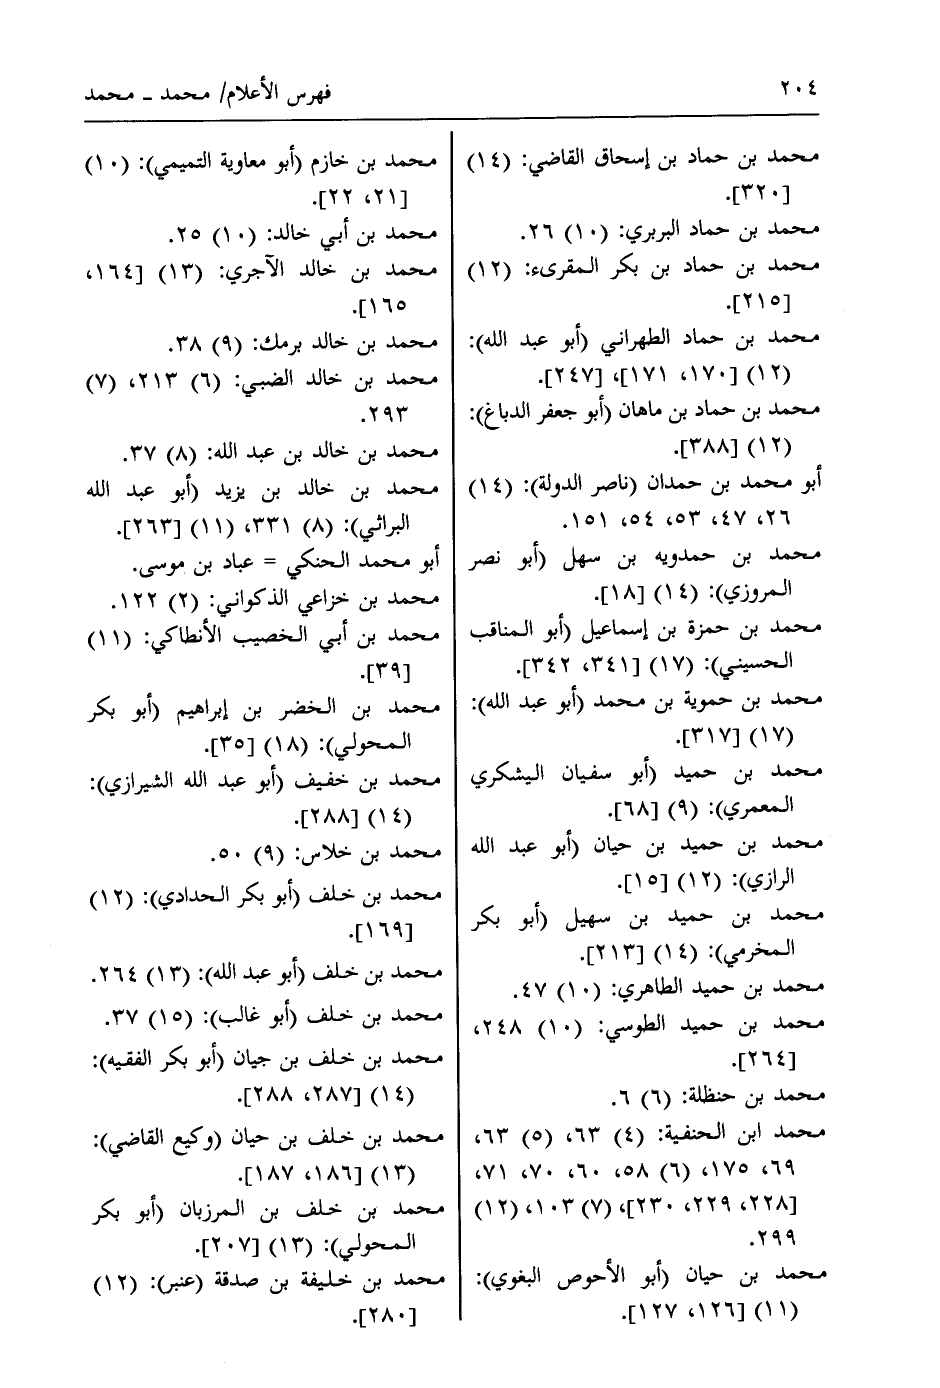 ٢٠٤
فهرس الأعلام/ محمد ـ محمد
محمد بن حماد بن إسحاق القاضي: (١٤)
[٣٢٠].
محمد بن حماد البربري: (١٠) ٢٦.
محمد بن حماد بن بكر المقرىء: (١٢)
[٢١٥].
محمد بن حماد الطهراني (أبو عبد الله):
(١٢) [١٧٠، ١٧١]، [٢٤٧].
محمد بن حماد بن ماهان (أبو جعفر الدباغ):
(١٢) [٣٨٨].
أبو محمد بن حمدان (ناصر الدولة): (١٤)
٢٦، ٤٧، ٥٣، ٥٤، ١٥١.
محمد بن حمدويه بن سهل (أبو نصر
المروزي): (١٤) [١٨].
محمد بن حمزة بن إسماعيل (أبو المناقب
الحسيني): (١٧) [٣٤١، ٣٤٢].
محمد بن حموية بن محمد (أبو عبد الله):
(١٧) [٣١٧].
محمد بن حميد (أبو سفيان اليشكري
المعمري): (٩) [٦٨].
محمد بن حميد بن حيان (أبو عبد الله
الرازي): (١٢) [١٥].
محمد بن حميد بن سهيل (أبو بكر
المخرمي): (١٤) [٢١٣].
محمد بن حميد الطاهري: (١٠) ٤٧.
محمد بن حميد الطوسي: (١٠) ٢٤٨،
[٢٦٤].
محمد بن حنظلة: (٦) ٦.
محمد ابن الحنفية: (٤) ٦٣، (٥) ٦٣،
٦٩، ١٧٥، (٦) ٥٨، ٦٠، ٧٠، ٧١،
[٢٢٨، ٢٢٩، ٢٣٠]، (٧) ١٠٣، (١٢)
٢٩٩.
محمد بن حيان (أبو الأحوص البغوي):
(١١) [١٢٦، ١٢٧].
محمد بن خازم (أبو معاوية التميمي): (١٠)
[٢١، ٢٢].
محمد بن أبي خالد: (١٠) ٢٥.
محمد بن خالد الآجري: (١٣) [١٦٤،
١٦٥].
محمد بن خالد برمك: (٩) ٣٨.
محمد بن خالد الضبي: (٦) ٢١٣، (٧)
٢٩٣.
محمد بن خالد بن عبد الله: (٨) ٣٧.
محمد بن خالد بن يزيد (أبو عبد الله
البراثي): (٨) ٣٣١، (١١) [٢٦٣].
أبو محمد الحنكي = عباد بن موسى.
محمد بن خزاعي الذكواني: (٢) ١٢٢.
محمد بن أبي الخصيب الأنطاكي: (١١)
[٣٩].
محمد بن الخضر بن إبراهيم (أبو بكر
المحولي): (١٨) [٣٥].
محمد بن خفيف (أبو عبد الله الشيرازي):
(١٤) [٢٨٨].
محمد بن خلاس: (٩) ٥٠.
محمد بن خلف (أبو بكر الحدادي): (١٢)
[١٦٩].
محمد بن خلف (أبو عبد الله): (١٣) ٢٦٤.
محمد بن خلف (أبو غالب): (١٥) ٣٧.
محمد بن خلف بن جيان (أبو بكر الفقيه):
(١٤) [٢٨٧، ٢٨٨].
محمد بن خلف بن حيان (وكيع القاضي):
(١٣) [١٨٦، ١٨٧].
محمد بن خلف بن المرزبان (أبو بكر
المحولي): (١٣) [٢٠٧].
محمد بن خليفة بن صدقة (عنبر): (١٢)
[٢٨٠].